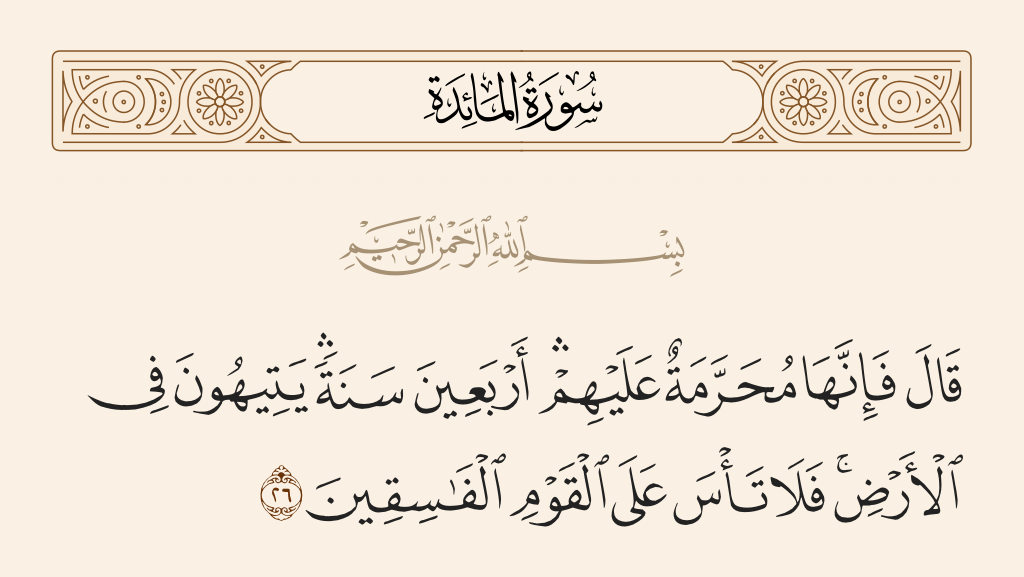 سُورَةُ المَائِدَةِ
بِسْمِ ٱللَّهِ ٱلرَّحْمَٰنِ ٱلرَّحِيمِ
قَالَ فَإِنَّهَا مُحَرَّمَةٌ عَلَيْهِمْ ۛ أَرْبَعِينَ سَنَةً ۛ يَتِيهُونَ فِى
ٱلْأَرْضِ ۚ فَلَا تَأْسَ عَلَى ٱلْقَوْمِ ٱلْفَـٰسِقِينَ ٢٦